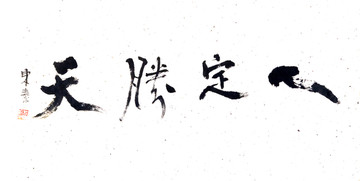 人定勝天